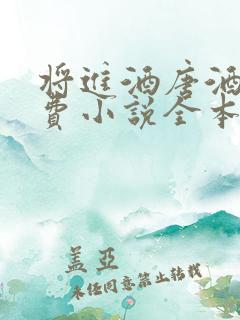 将进酒唐酒
费小说全本
盖亚
未经同意禁止转载